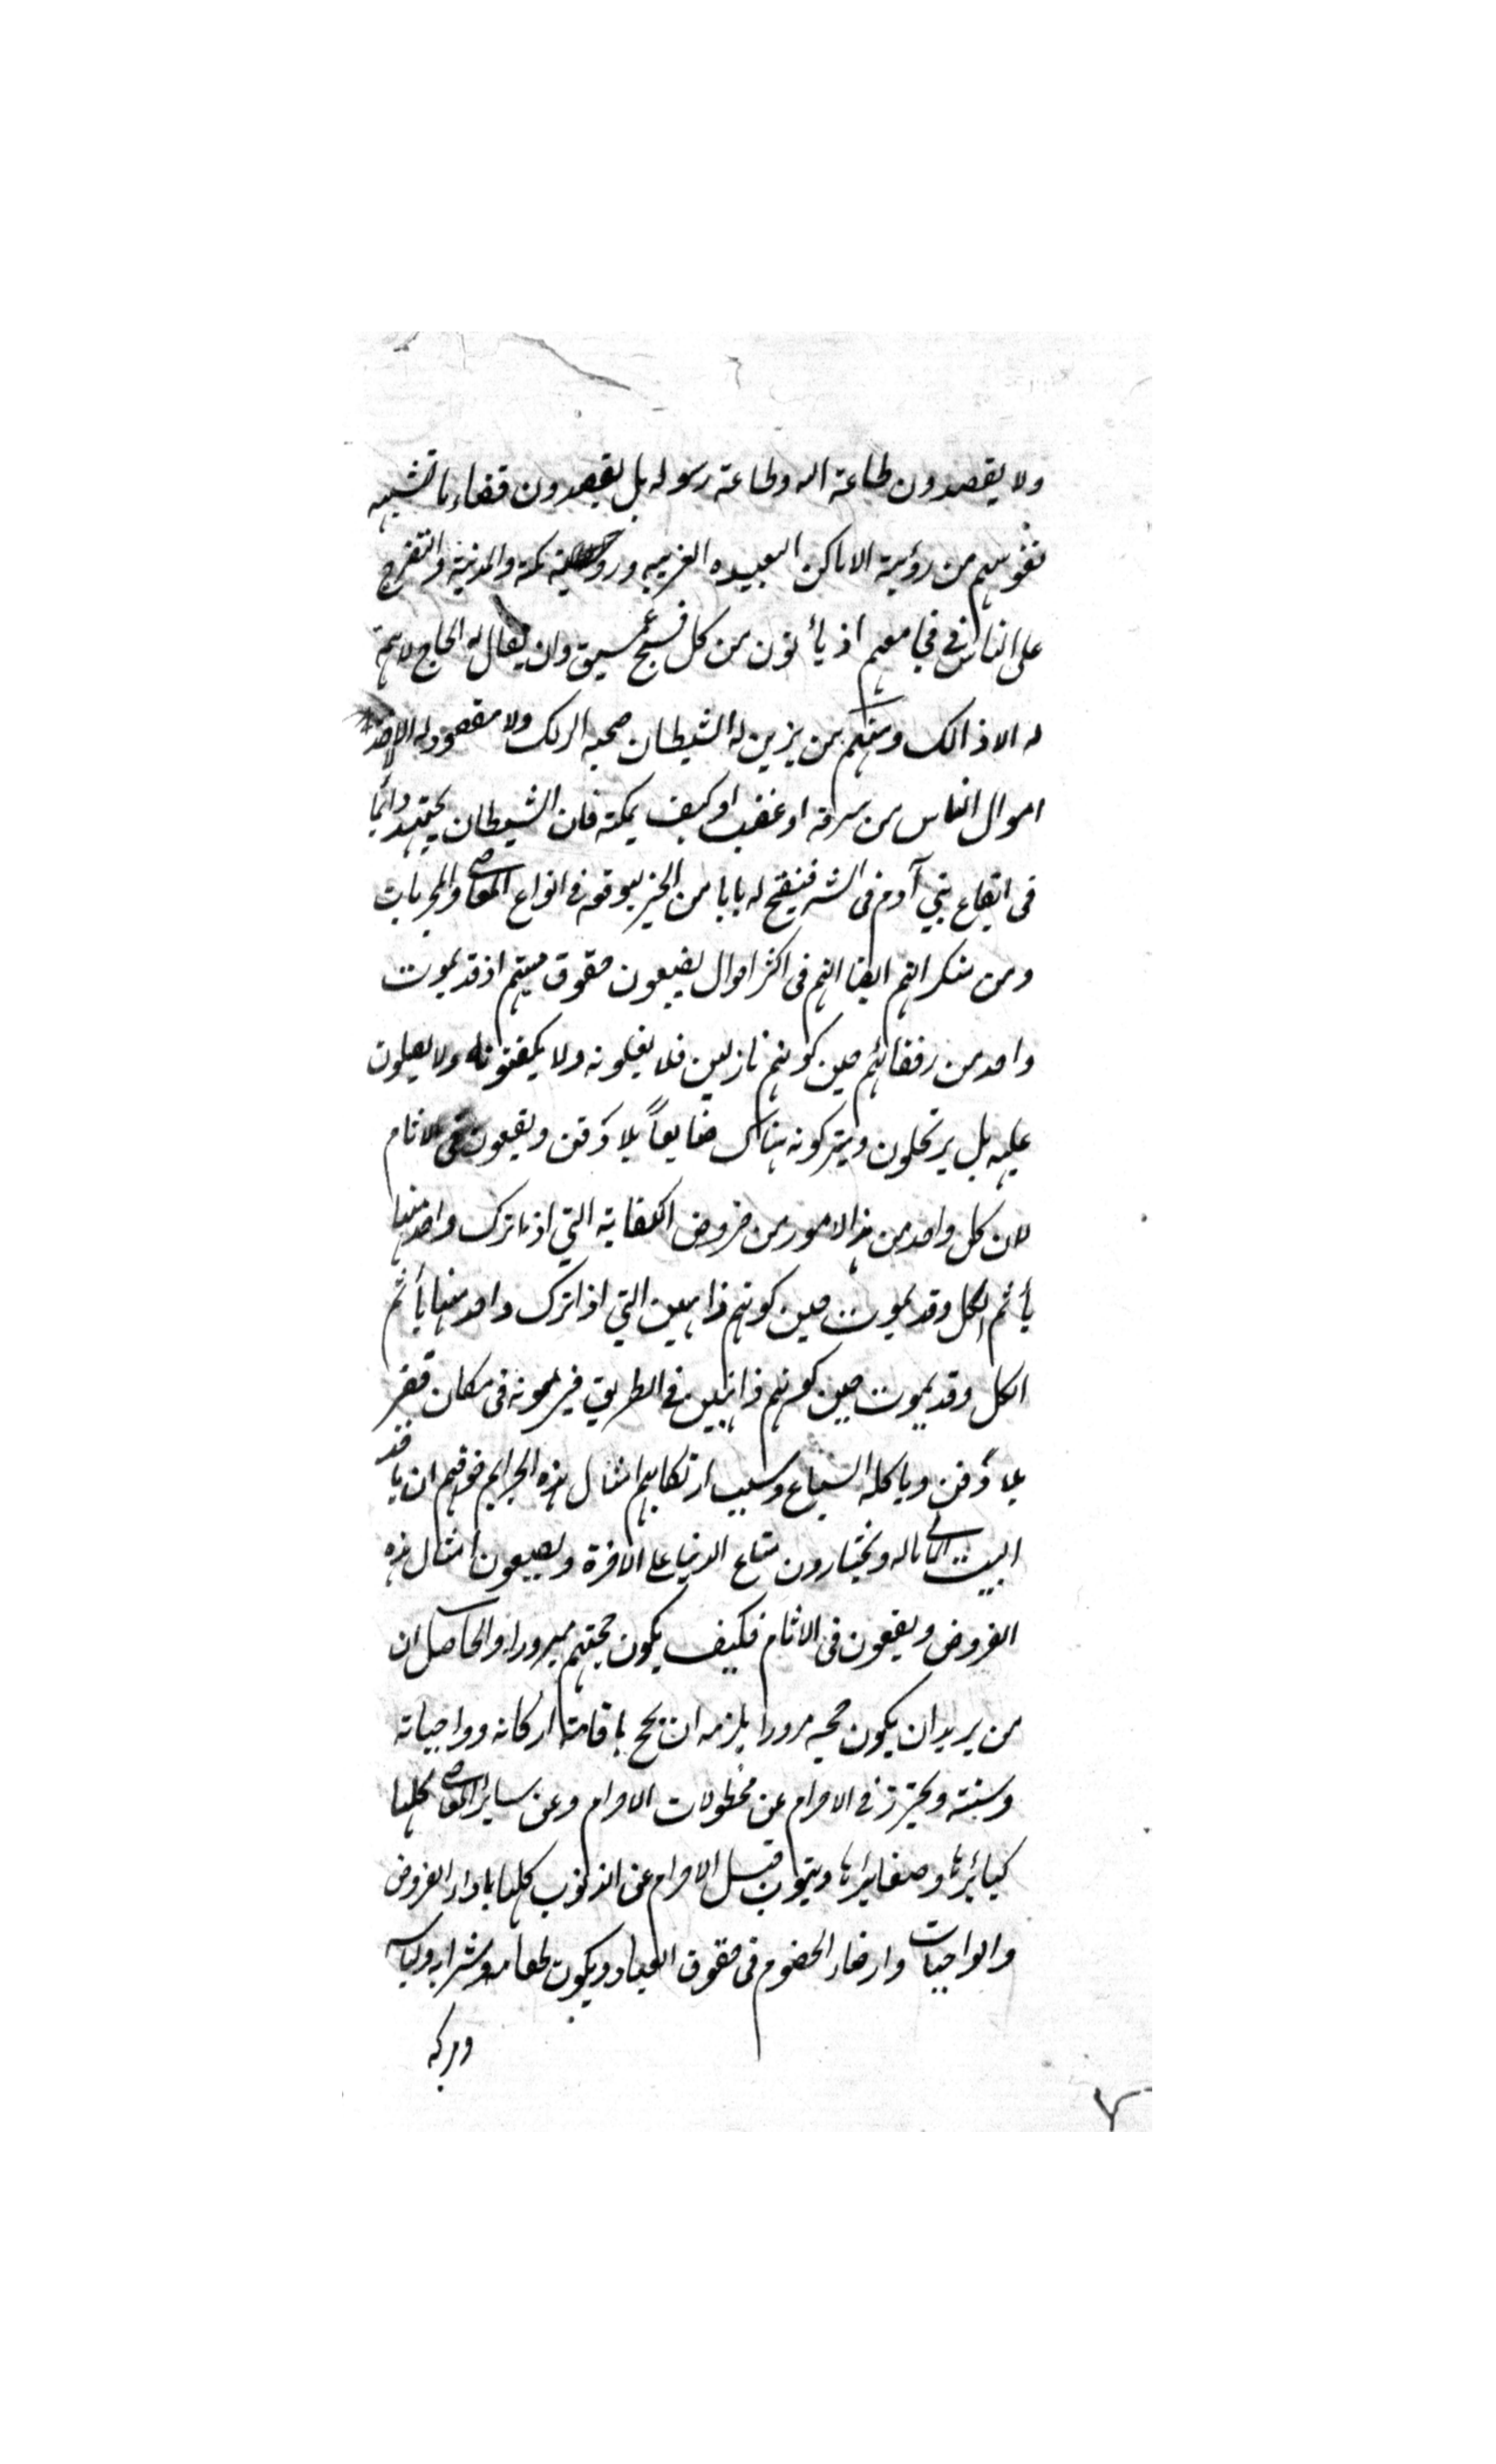 ولا يقصدون طاعة الله وطاعة رسوله بل يقصدون قضاء ما تشتهيه
نفوسهم من رؤية الاماكن البعيده الغريبه مكة والمدينة والتفرج
على الناس في مجامعهم اذ يأتون من كل فج عميق وان يقال له الحاج لا همة
له الا ذالك ومنهم من يزين له الشيطان صحبه الركب ولا مقصود له الا اخذ
اموال الناس من سرقة او غضب او كيف يمكنه فان الشيطان يجتهد دائما
فى ايقاع بني آدم فى الشر فيفتح له بابا من الخير ليوقعه فى انواع المعاصي
ومن منكراتهم ايضا انهم فى اكثر احوال يضيعون حقوق ميتهم اذ قد يموت
واحد من رفقائهم حين كونهم نازلين فلا يغسلونه ولا يكفنونه ولا يصلون
عليه بل يرتحلون ويتركونه هناك ضايعاً بلا دفن ويقعون فى الاثام
لان كل واحد من هذا الامور من فروض الكفاية التي اذا ترك واحد منها
يأثم الكل وقد يموت حين كونهم ذاهبين التي اذا ترك واحد منها يأثم
الكل وقد يموت حين كونهم ذاهبين فى الطريق فيرمونه فى مكان قفر
بلا دفن وياكله السباع وسبب ارتكابهم امثال هذه الجرايم خوفهم ان ياخذ
البيت المالي ماله ويختارون متاع الدنيا على الاخرة ويضيعون امثال هذه
الفروض ويقعون فى الاثام فكيف يكون حجتهم مبرورا والحاصل ان
من يريد ان يكون حجه مرورا يلزمه ان يحج باقامة اركانه وواجباته
وسننه ويحترز فى الاحرام عن محظولات الاحرام وعن ساير المعاصي كلها
كبائرها وصغايرها ويتوب قبل الاحرام عن الذنوب كلها باداء الفروض
والواجبات وارضاء الخصوم فى حقوق العباد ويكون طعامه وشرابه ولباسه
ومركبه
٧